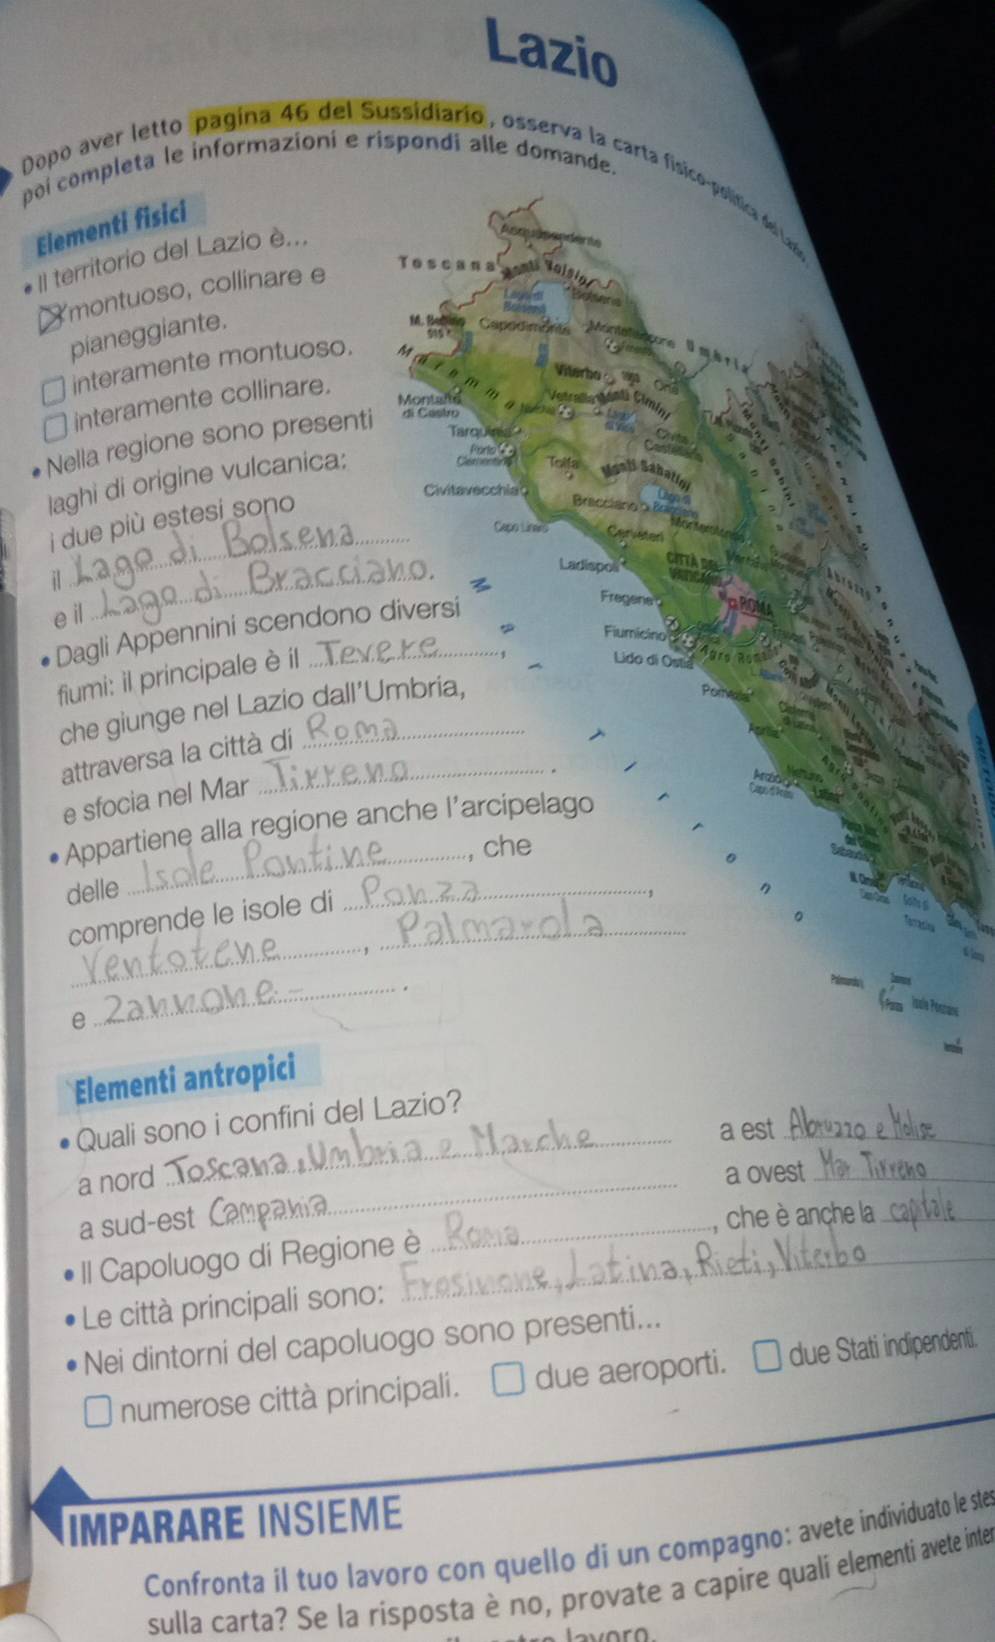 Lazio
Dopo aver letto pagina 46 del Sussidiario, osserva la carta fisico-politica del Lazio,
poi completa le informazioni e rispondi alle domande.
Elementi fisici
• Il territorio del Lazio è...
montuoso, collinare e
pianeggiante.
interamente montuoso.
interamente collinare.
• Nella regione sono presenti
laghi di origine vulcanica:
i due più estesi sono
il Lago di Bolsena
e il Lago di Bracciano.
• Dagli Appennini scendono diversi
fiumi: il principale è il Tevere,
che giunge nel Lazio dall'Umbria,
attraversa la città di Roma
e sfocia nel Mar Tirreno.
• Appartiene alla regione anche l'arcipelago
delle Isole Pontine, che
comprende le isole di Ponza,
Ventotene, Palmarola
e Zannone.
Toscana
Acquapendente
Monti Volsini
Lago di
Bolsena
Bolsena
Capodimonte
Montefiascone
Umbria
Maremma
Viterbo
Montalto
di Castro
Vetralla
Monti Cimini
Tarquinia
Tolfa
Monti Sabatini
Civitavecchia
Bracciano
Capo Linaro
Cerveteri
Ladispoli
CITTÀ DEL
VATICANO
ROMA
Fregene
Fiumicino
Lido di Ostia
Agro Romano
Pomezia
Aprilia
Anzio
Latina
Sabaudia
Elementi antropici
• Quali sono i confini del Lazio?
a nord Toscana, Umbria e Marche a est Abruzzo e Molise
a sud-est Campania a ovest Mar Tirreno
• Il Capoluogo di Regione è Roma, che è anche la capitale
• Le città principali sono: Frosinone, Latina, Rieti, Viterbo
• Nei dintorni del capoluogo sono presenti...
numerose città principali. due aeroporti. due Stati indipendenti.
IMPARARE INSIEME
Confronta il tuo lavoro con quello di un compagno: avete individuato le stes
sulla carta? Se la risposta è no, provate a capire quali elementi avete inter
lavoro.